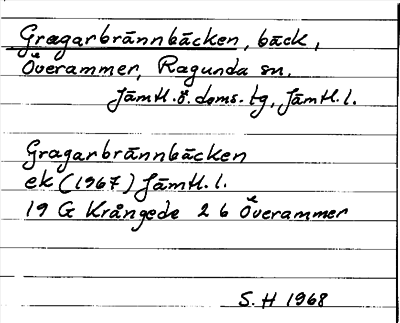 Gragarbrännbäcken, bäck,
Överammer, Ragunda sn.
Jämtl. ö. doms. tg, Jämtl. l.
Gragarbrännbäcken
ek (1967) Jämtl. l.
19 G Krångede 2 6 Överammer
S. H 1968